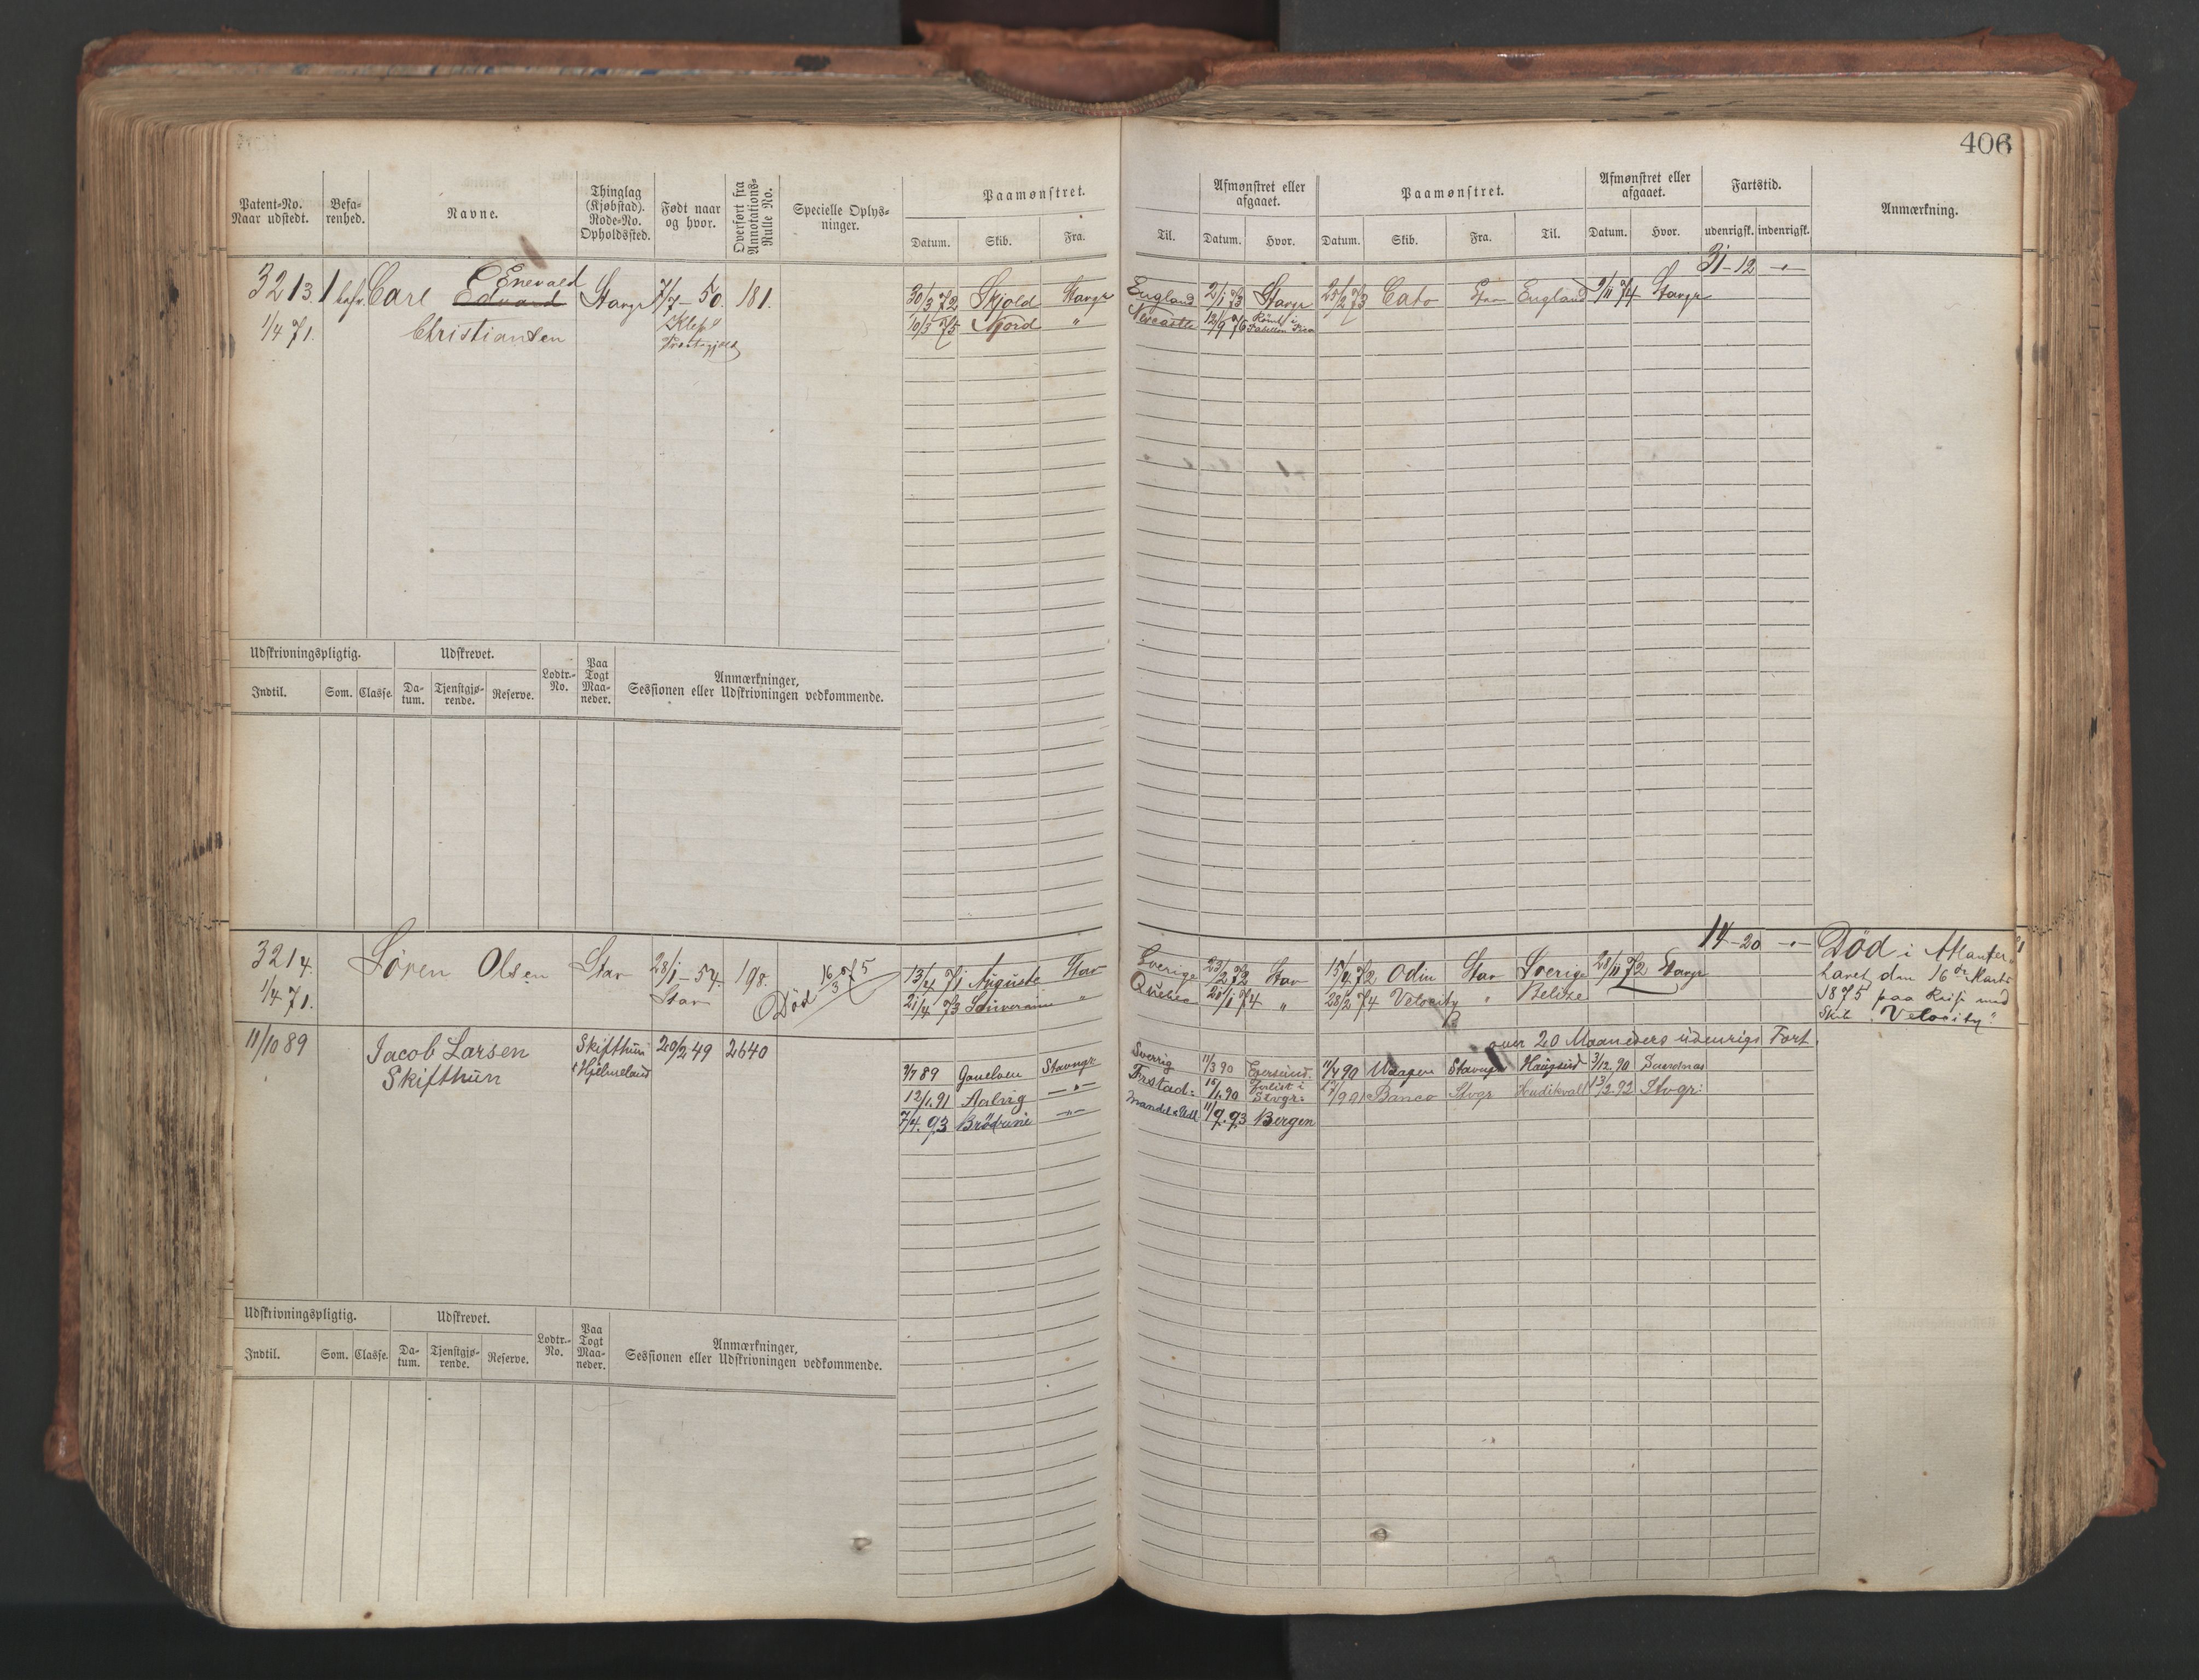 406
Patent-No.
Naar udstedt.
Befa-
renhed.
Navne.
Thinglag
(Kjøbstad).
Rode-No.
Opholdssted.
Født naar
og hvor.
Overført fra
Annotations-
Rulle No.
Specielle Oplys-
ninger.
Paamønstret.
Datum. Skib. Fra.
Til.
Afmønstret eller
afgaaet.
Datum. Hvor.
Paamønstret.
Datum. Skib. Fra. Til.
Afmønstret eller
afgaaet.
Datum. Hvor.
Fartstid.
udenrigsk. indenrigsk.
Anmærkning.
31-12 -"-
3213. 1 Carl Enevald Stavgr 7/7-50. 181.
Edvard
1/4 71. Christiansen Klep
Præstegjeld
30/3 72 Skjold Stavgr England 2/1 73 Stavgr 25/2 73 Cato Stav England 9/11 74 Stavgr
10/5 75 Njord " 12/9 76 Rømt i
Udskrivningspligtig. Udskrevet. Lodtr.-
No. Paa
Togt
Maa-
neder. Anmærkninger,
Sessionen eller Udskrivningen vedkommende.
Indtil. Som. Classe. Da-
tum. Tjenstgjø-
rende. Reserve.
14-20 -"-
3214. Søren Olsen Stav 28/1-54. 198.
1/4 71. Stav Død 16/3 75
13/4 71 Auguste Stav Sverige 23/2 72 Stav 15/4 72 Odin Stav Sverige 28/11 72 Stavgr
21/4 73 " Quebec 21/1 74 " 28/2 74 Velocity " Belize
Død i Atlanter-
havet den 16de Marts
1875 paa Reise med
Skib "Velocity".
over 20 Maaneders udenrigs Fart.
11/10 89 Jacob Larsen Skifthun 20/2 49 2640
Skifthun Hjelmeland
89 Stavngr Sverrig 11/3 90 11/4 90 Stavngr Haugsund 3/12 90
12/1. 91 -"- Frstad: Forlist i Banco Stvgr 92 Stvgr:
Stvgr:
7/4. 93 Brødrene -"- 11/9. 93 Bergen
Udskrivningspligtig. Udskrevet. Lodtr.-
No. Paa
Togt
Maa-
neder. Anmærkninger,
Sessionen eller Udskrivningen vedkommende.
Indtil. Som. Classe. Da-
tum. Tjenstgjø-
rende. Reserve.